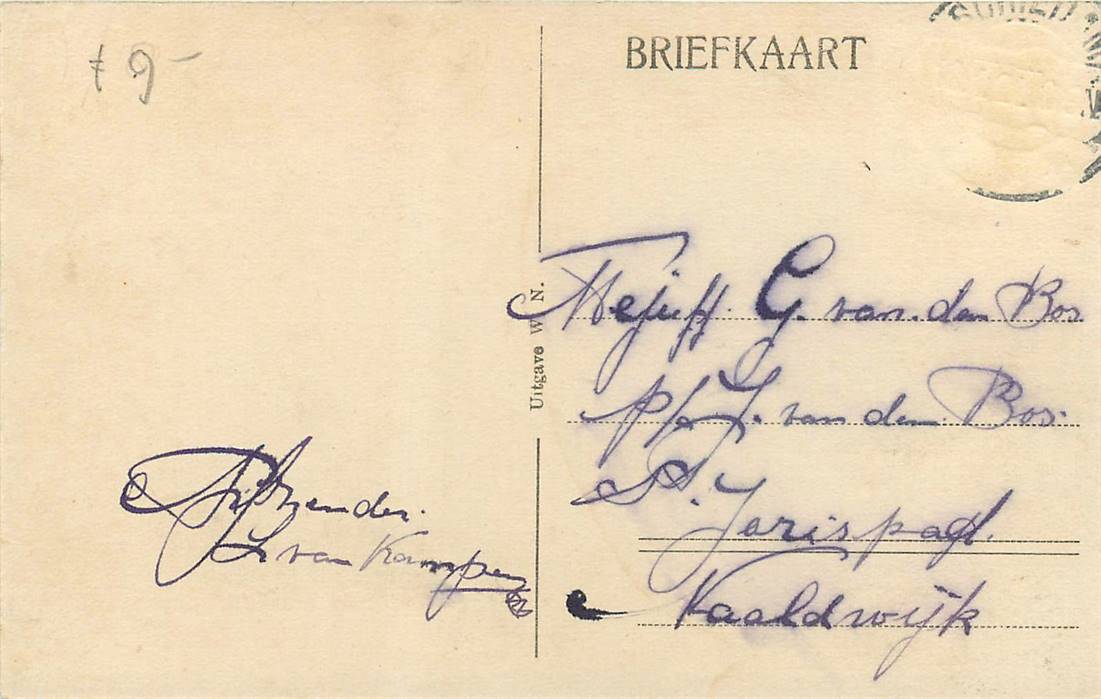 9-
BRIEFKAART
Uitgave W. N.
Mejuff. G. van den Bos
p/a J. van den Bos.
St. Jorispad.
Naaldwijk
Afzender.
L van Kampen